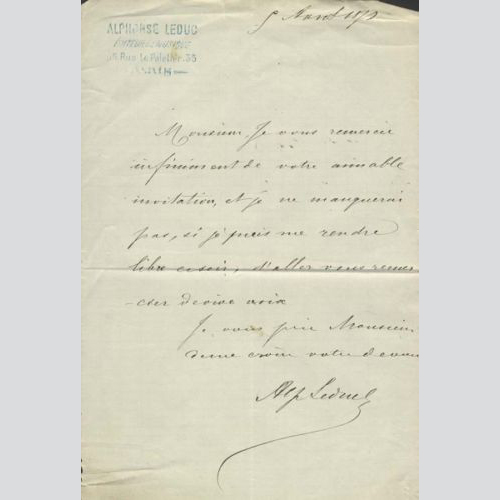 ALPHONSE LEDUC
35 Rue Le Peletier. 35
PARIS
Monsieur, Je vous remercie
infiniment de votre aimable
invitation, et je ne manquerai
pas, si je puis me rendre
libre ce soir, d'aller vous remer
-cier de vive voix
Je vous prie Monsieur
de me croire votre devoué
Alp Leduc